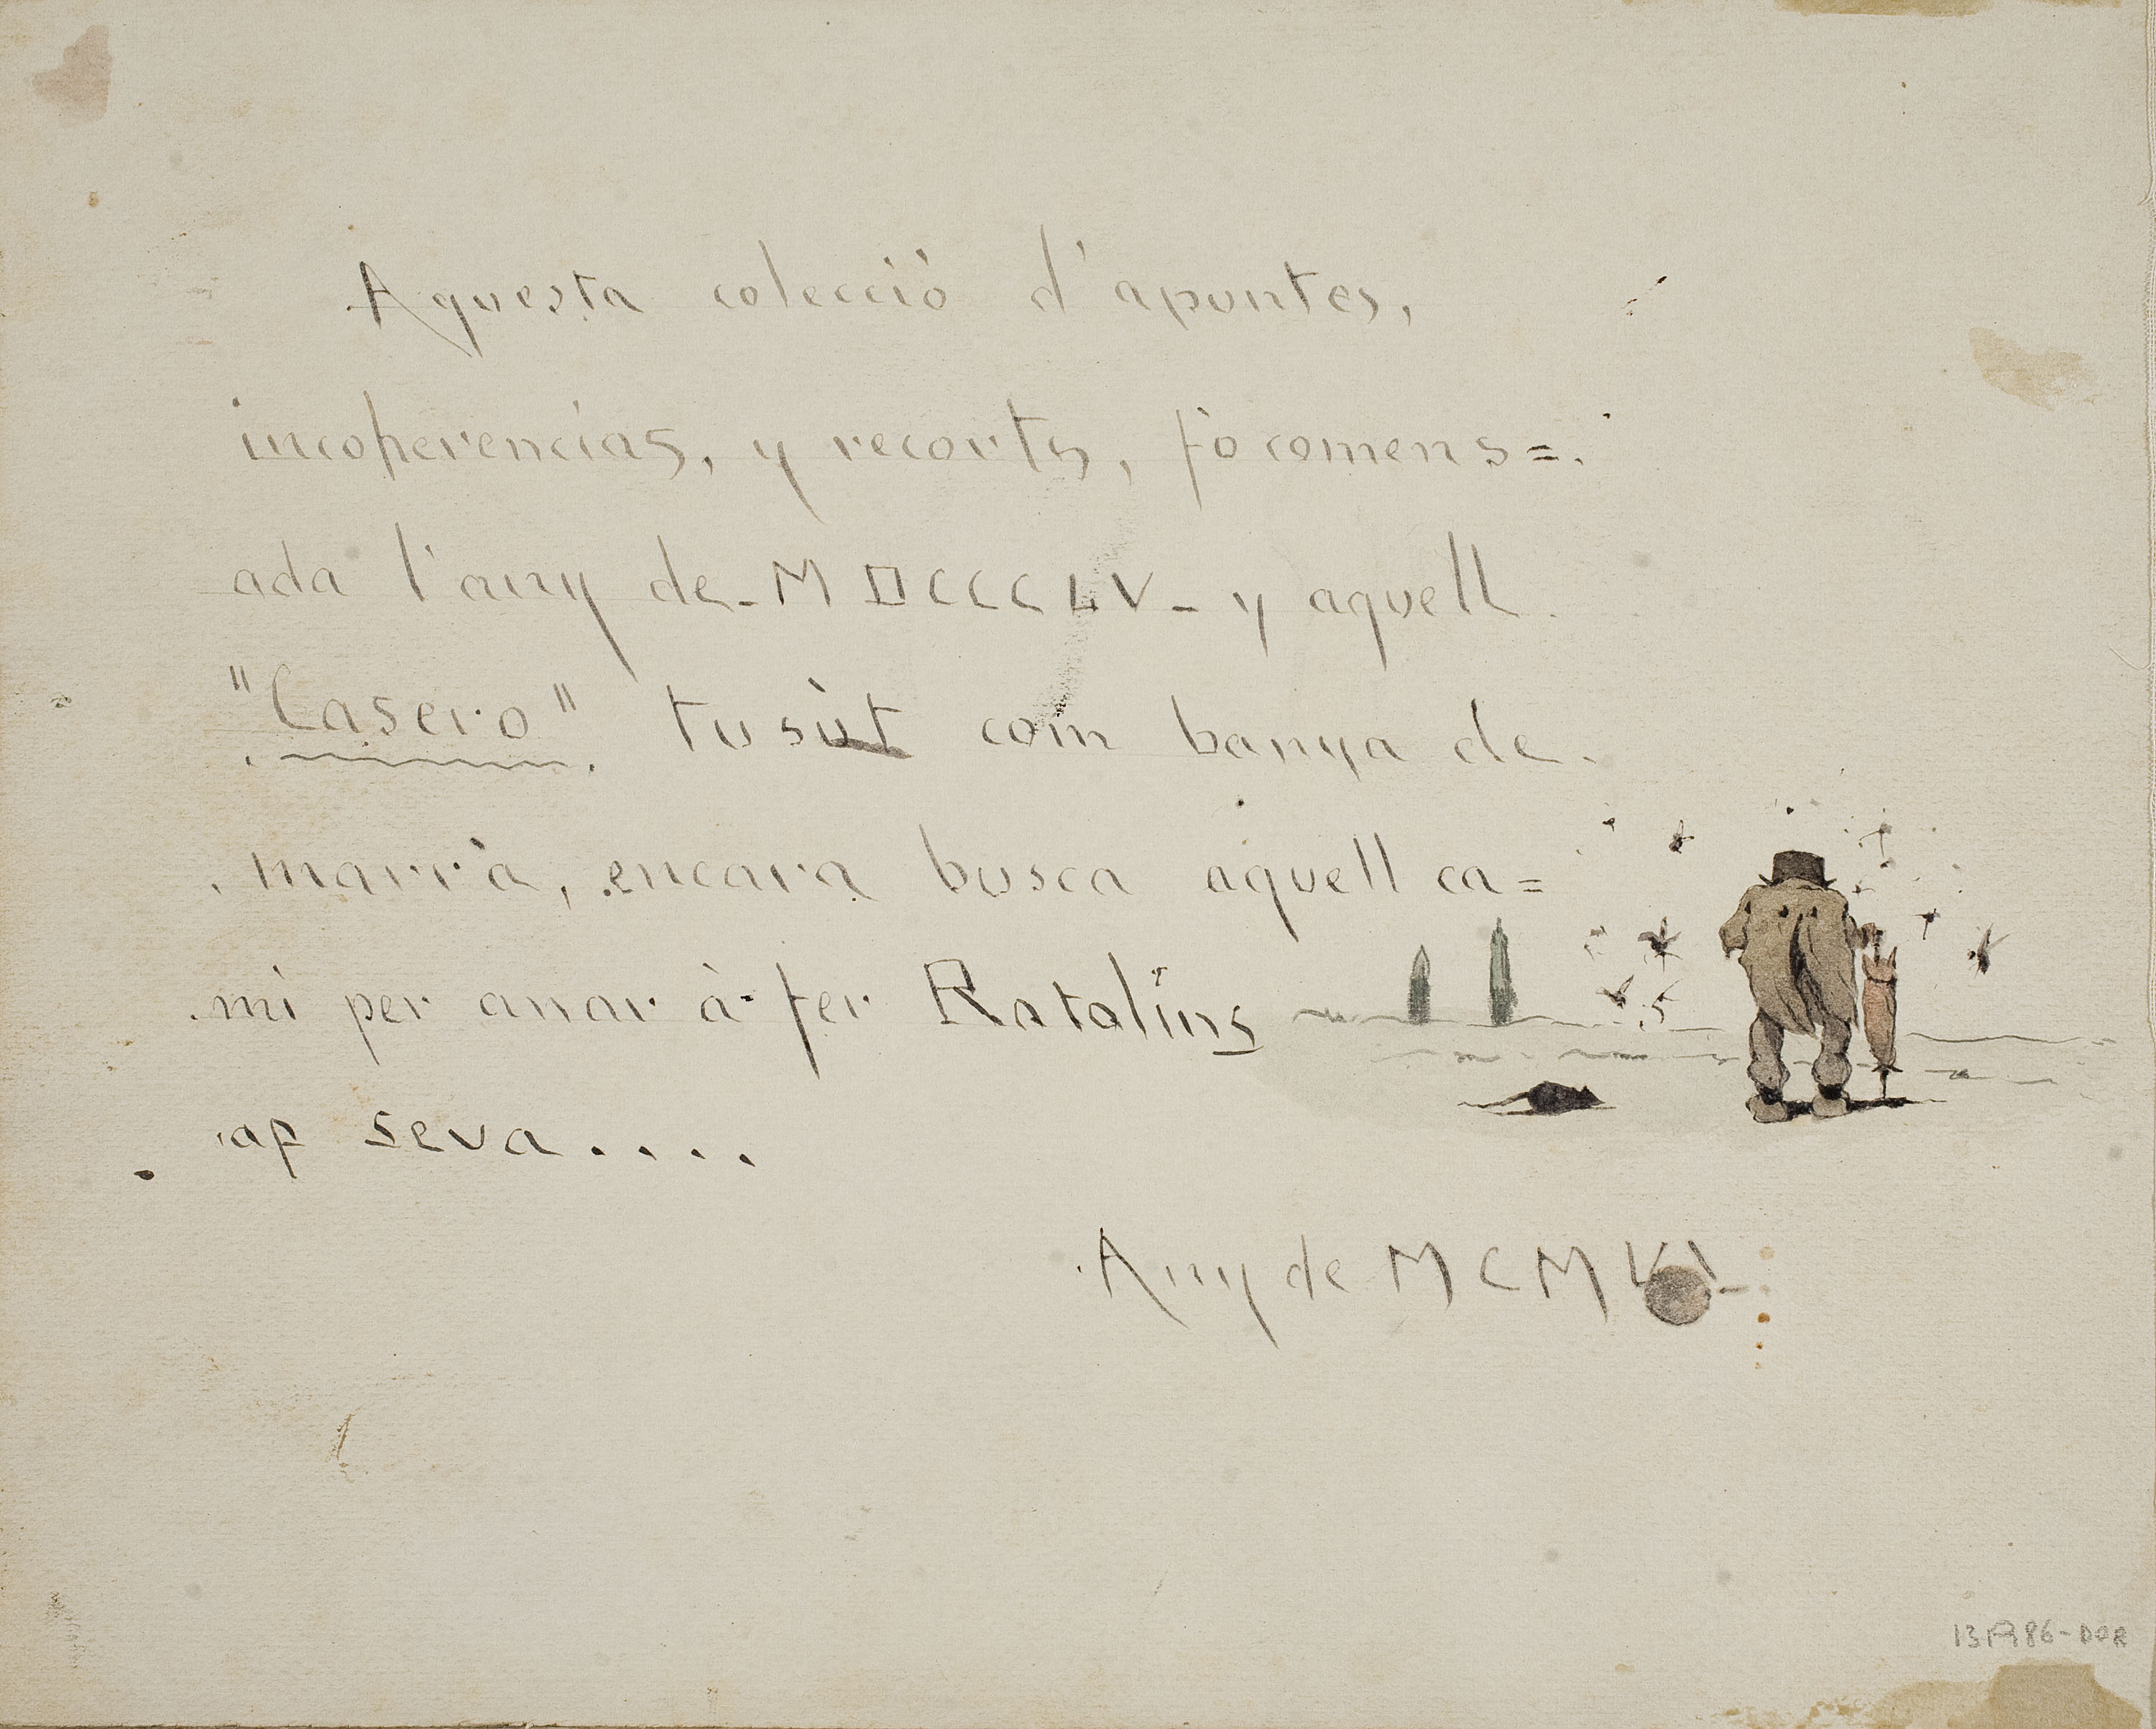 Aquesta colecció d'apuntes,
incoherencias, y recorts, fò comens=
ada l'any de - MDCCCLV - y aquell
"Casero" tusùt com banya de
marrà, encara busca aquell ca=
mi per anar à fer Ratolins
cap seva....
Any de MCMVI -